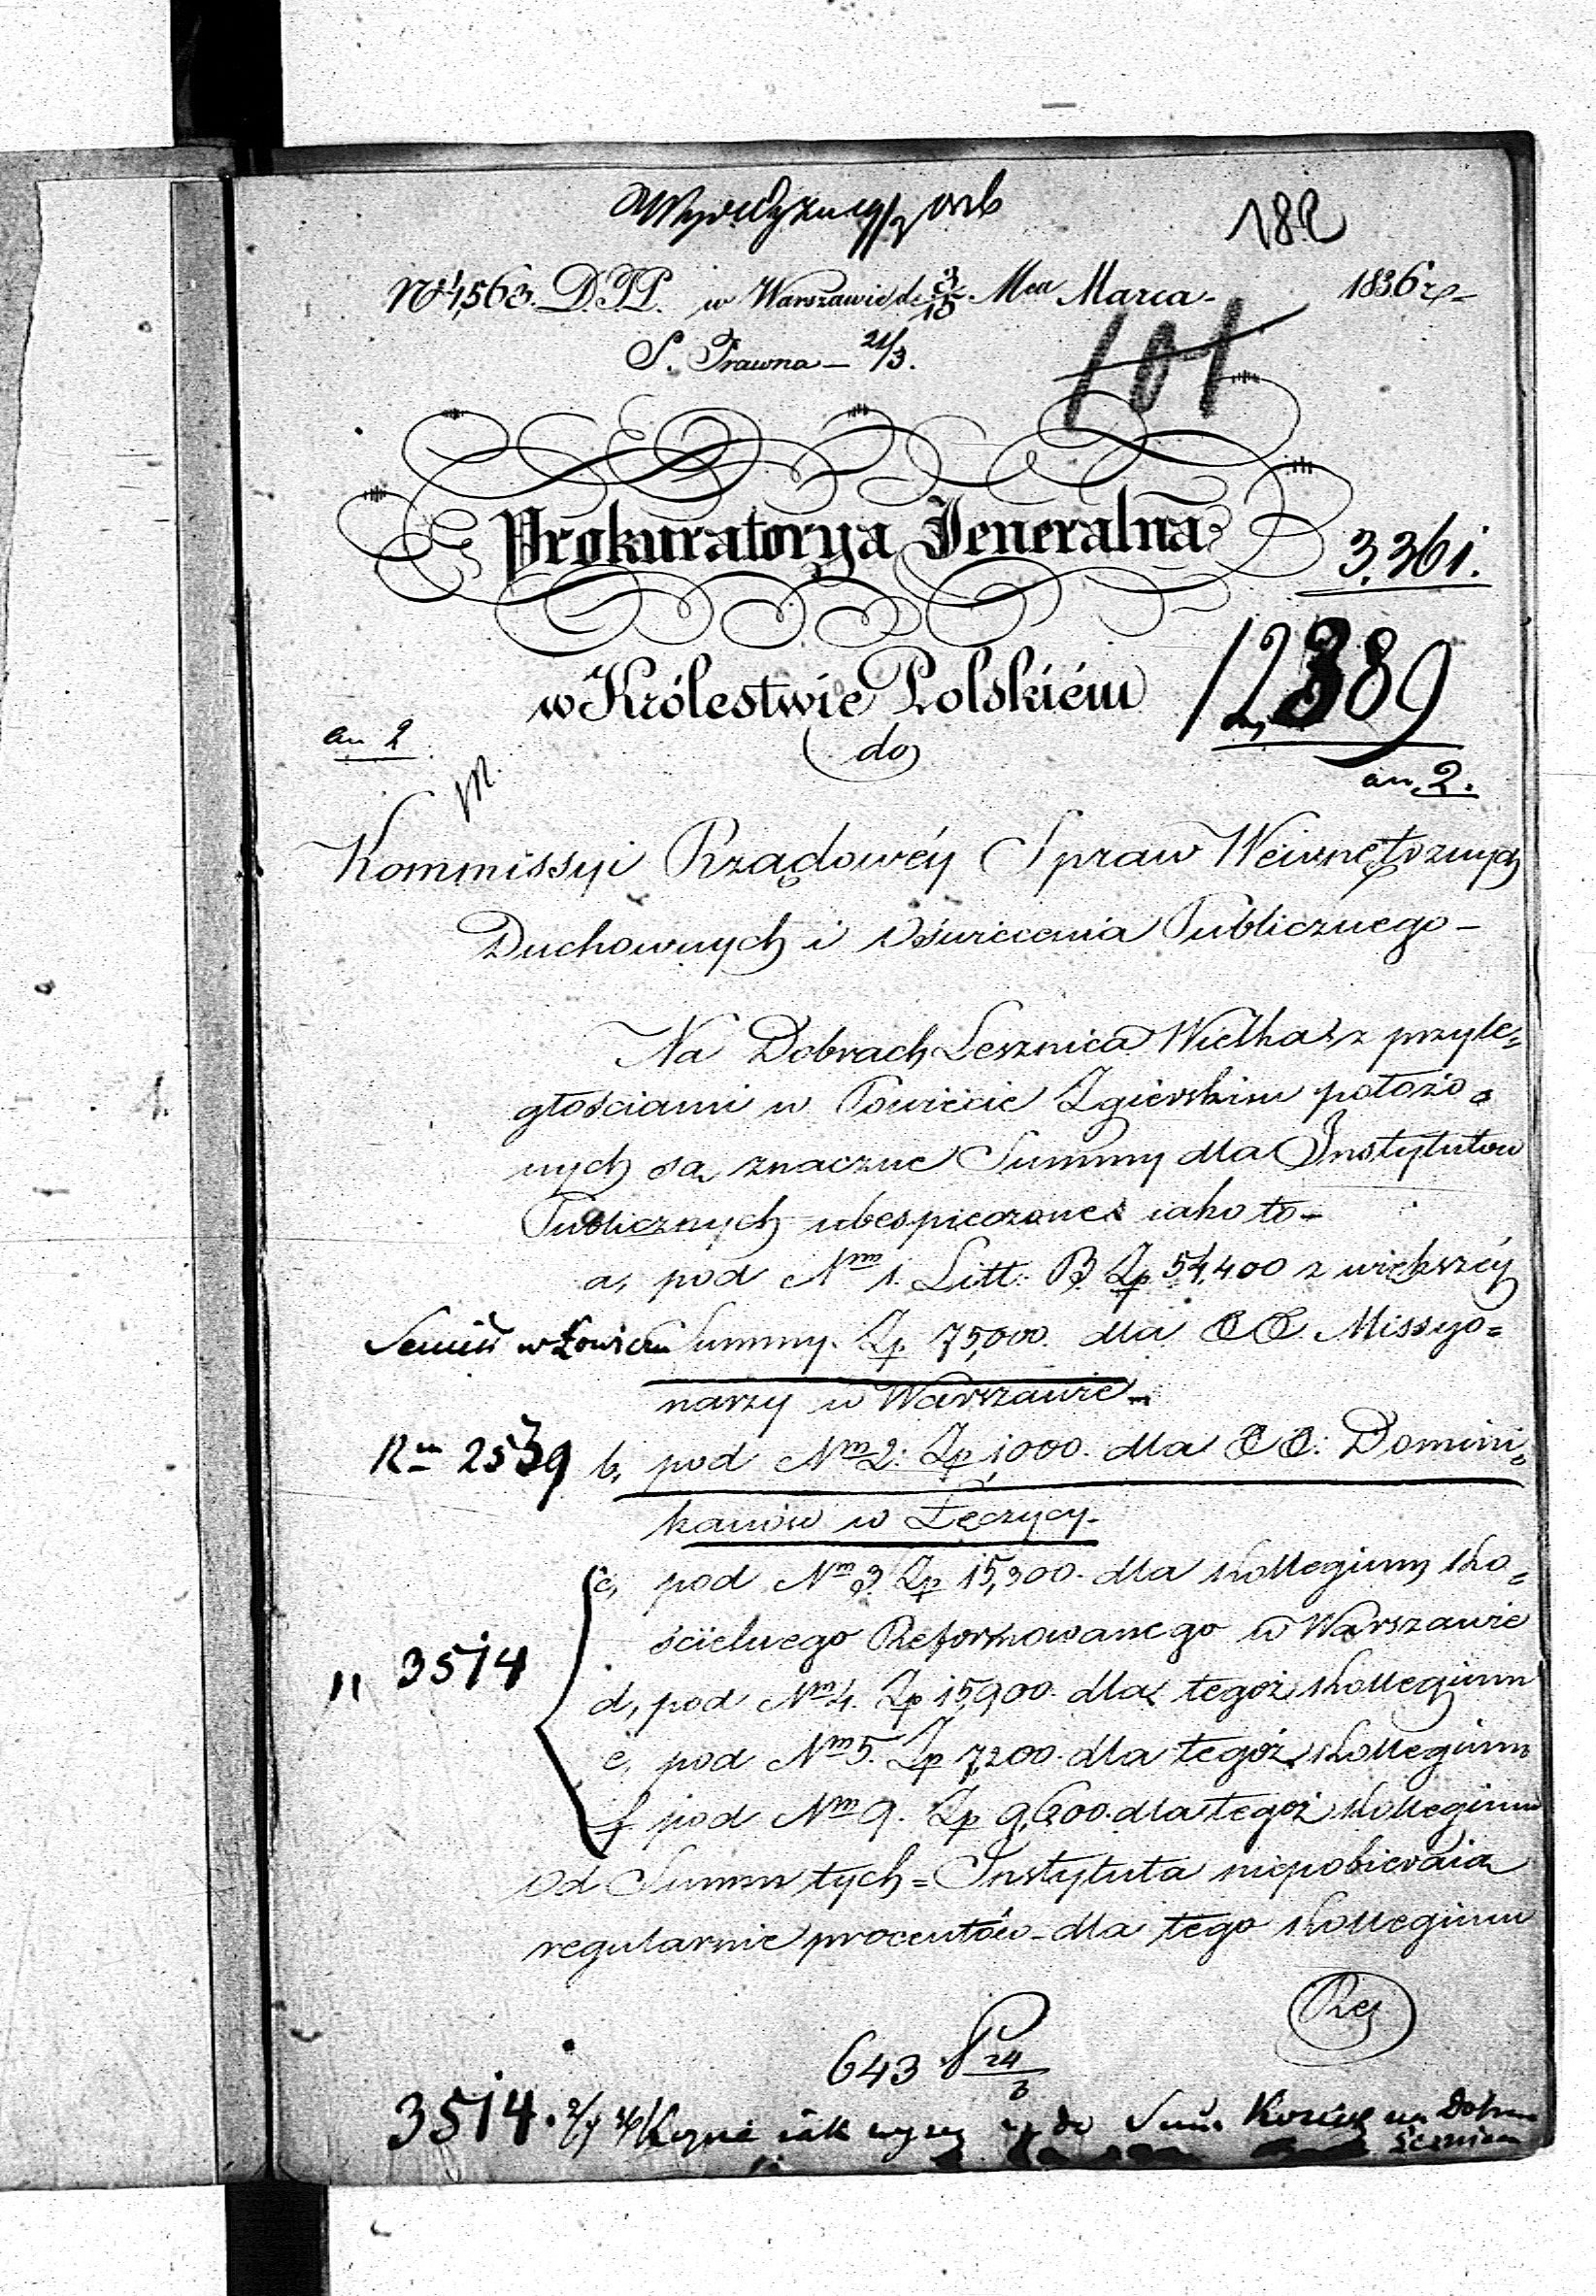 182
No 1,563. D.P.P. w Warszawie d. 3/15 Mca Marca 1836 r.
S. Prawna - 21/3.
101
Prokuratorya Jeneralna
3.361.
w Królestwie Polskiém
12389
an 2
do
an 2.
Kommissyi Rządowéy Spraw Wewnętrznych
Duchownych i Oświecenia Publicznego -
Na Dobrach Lesznica Wielka z przyle=
głościami w Powiecie Zgierskim położo=
nych są znaczne Summy dla Instytutow
Publicznych ubespieczone iako to -
a, pod Nm 1. Litt: B. Zp 54,400 z większéy
w Łowiczu Summy Zp. 75,000. dla OO Missyo=
narzy w Warszawie -
Rm 2539 b, pod Nm 2: Zp 1000. dla OO. Domini=
kanów w Łęczycy -
c, pod Nm 3. Zp 15,300. dla Kollegium Ko=
ścielnego Reformowanego w Warszawie
" 3514
d, pod Nm 4. Zp 15,900. dla tegoż Kollegium
e, pod Nm 5. Zp 7,200. dla tegoż Kollegium
f pod Nm 9. Zp 9,600. dla tegoż Kollegium
Od Summ tych = Instytuta niepobieraią
regularnie procentów - dla tego Kollegium
643 24/3
3514. iak wyzey do na Dobra